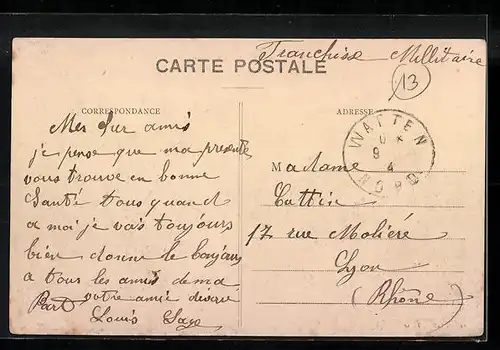 Franchisse Millitaire
CARTE POSTALE
13
CORRESPONDANCE
ADRESSE
Mes chr amis
je pense que ma presente
vous trouve en bonne
Santé tous quand
a moi je vais toujours
bien donne le bonjour
a tous les amis de ma
Part votre amie
Louis
Madame
Cuttin
17 rue Moliére
Lyon
(Rhône)
WATTEN
9 4
NORD